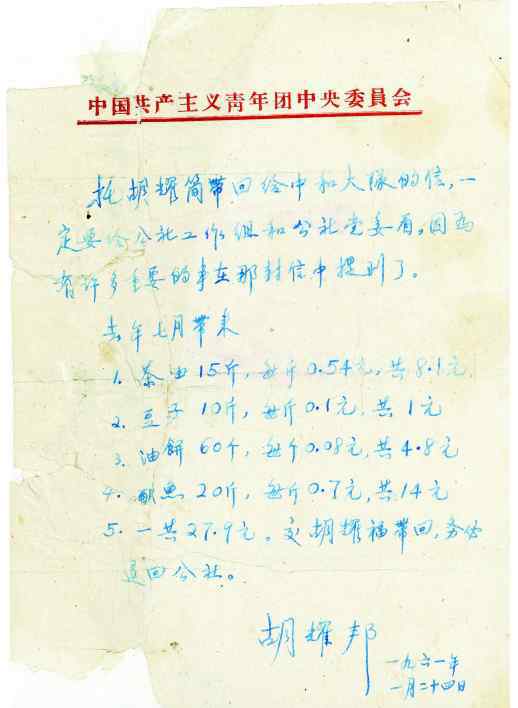 中国共产主义青年团中央委員会
托胡耀简带回给中和大隊的信，一
定要给公社工作组和公社党委看。因为
有许多重要的事在那封信中提到了。
去年七月带来
1. 茶油15斤，每斤0.54元，共8.1元
2. 豆子10斤，每斤0.1元，共1元
3. 油餅60个，每个0.08元，共4.8元
4. 魚20斤，每斤0.7元，共14元
5. 一共27.9元。交胡耀福带回，务必
退回公社。
胡耀邦
一九六一年
一月二十四日